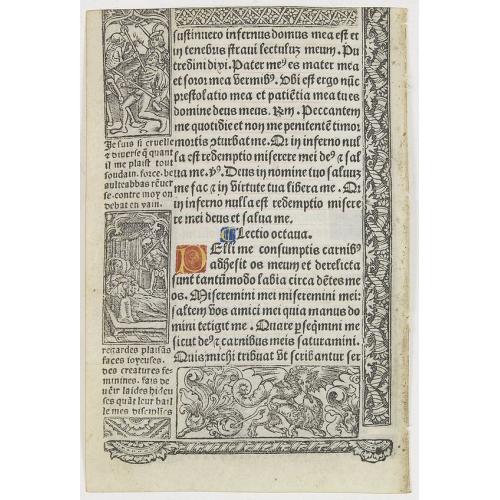 sustinuero infernus domus mea est et
in tenebris straui lectuluz meum. Pu
tredini dixi. Pater meꝰ es mater mea
et soror mea vermibꝰ. Vbi est ergo nũc
prestolatio mea et patiẽtia mea tu es
domine deus meus. Rm. Peccantem
me quotidie et non me penitentẽ timor
mortis ꝯturbat me. Qr in inferno nul
la est redemptio miserere mei deꝰ et sal
ua me. Deus in nomine tuo saluuz
me fac et in virtute tua libera me. Qr
in inferno nulla est redẽptio misere
re mei deus et salua me.
Lectio octaua.
PElli me consumptis carnibꝰ
adhesit os meum et derelicta
sunt tantũmodo labia circa dẽtes me
os. Miseremini mei miseremini mei:
saltem vos amici mei quia manus do
mini tetigit me. Quare perseqmini me
sicut deꝰ et carnibus meis saturamini.
Quis michi tribuat vt scribantur ser
Je suis si cruelle
et diuerse q̃ quant
il me plaist tout
soudain. force. be
aulte abbas rẽuer
se. contre moy on
debat en vain.
regardes plaisãs
faces ioyeuses.
des creatures fe-
minines. fais de
uẽir laides hideu
ses quãt leur bail
le mes disciplines